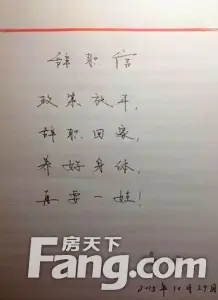 辞职信
政策放开,
辞职回家,
养好身体,
再要一娃!
房天下
Fang.com
2015年10月29日